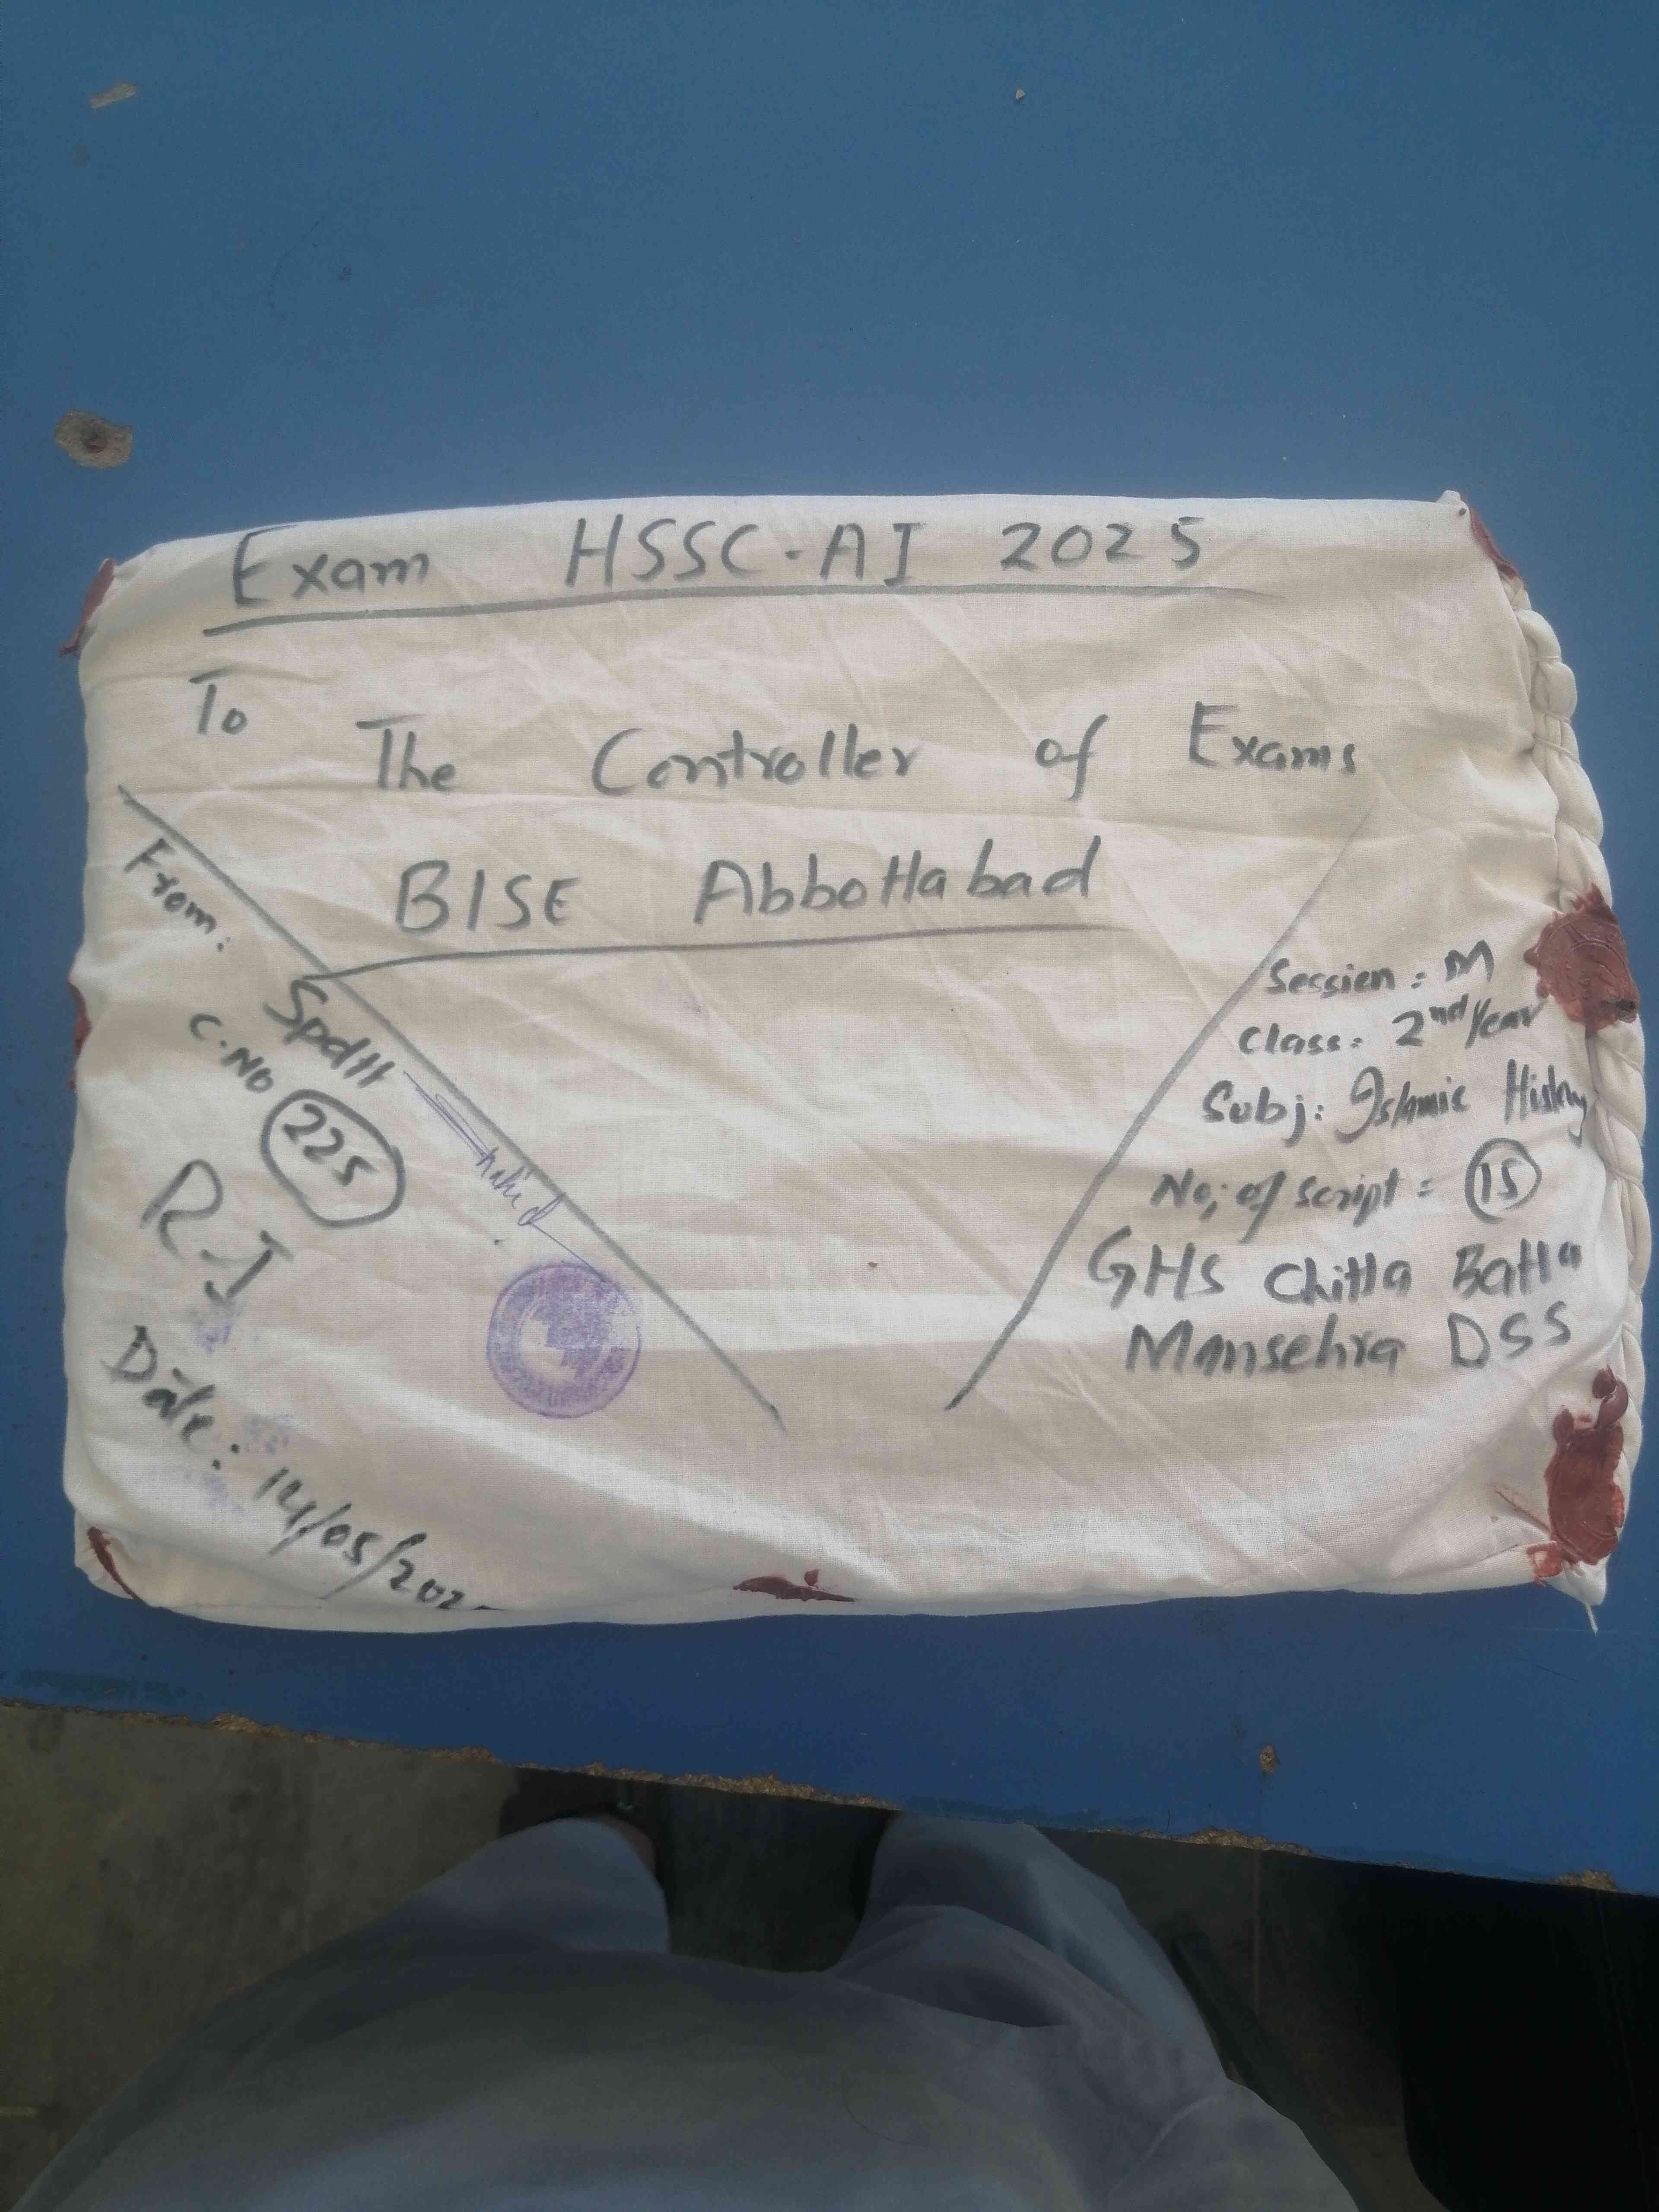 Exam HSSC-AI 2025
To
The Controller of Exams
BISE Abbottabad
From:
Spdtt
C.No 225
R-I
Date: 14/05/202
Session: M
Class: 2nd Year
Subj: Islamic History
No; of script = 15
GHS Chitta Batta
Mansehra DSS